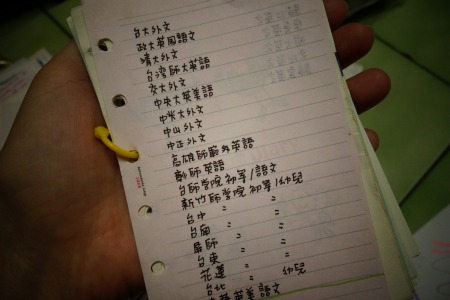 台大外文
政大英國語文
清大外文
台灣師大英語
交大外文
中央大英美語
大外文
中山外文
中正外文
高雄師範外英語
彰師英語
台師學院 初等/語文
新竹師學院 初等/幼兒
台中 〃 〃
台南 〃 〃
屏師 〃 〃
台東 〃 〃
花蓮 〃 幼兒
台北 〃
英美語文